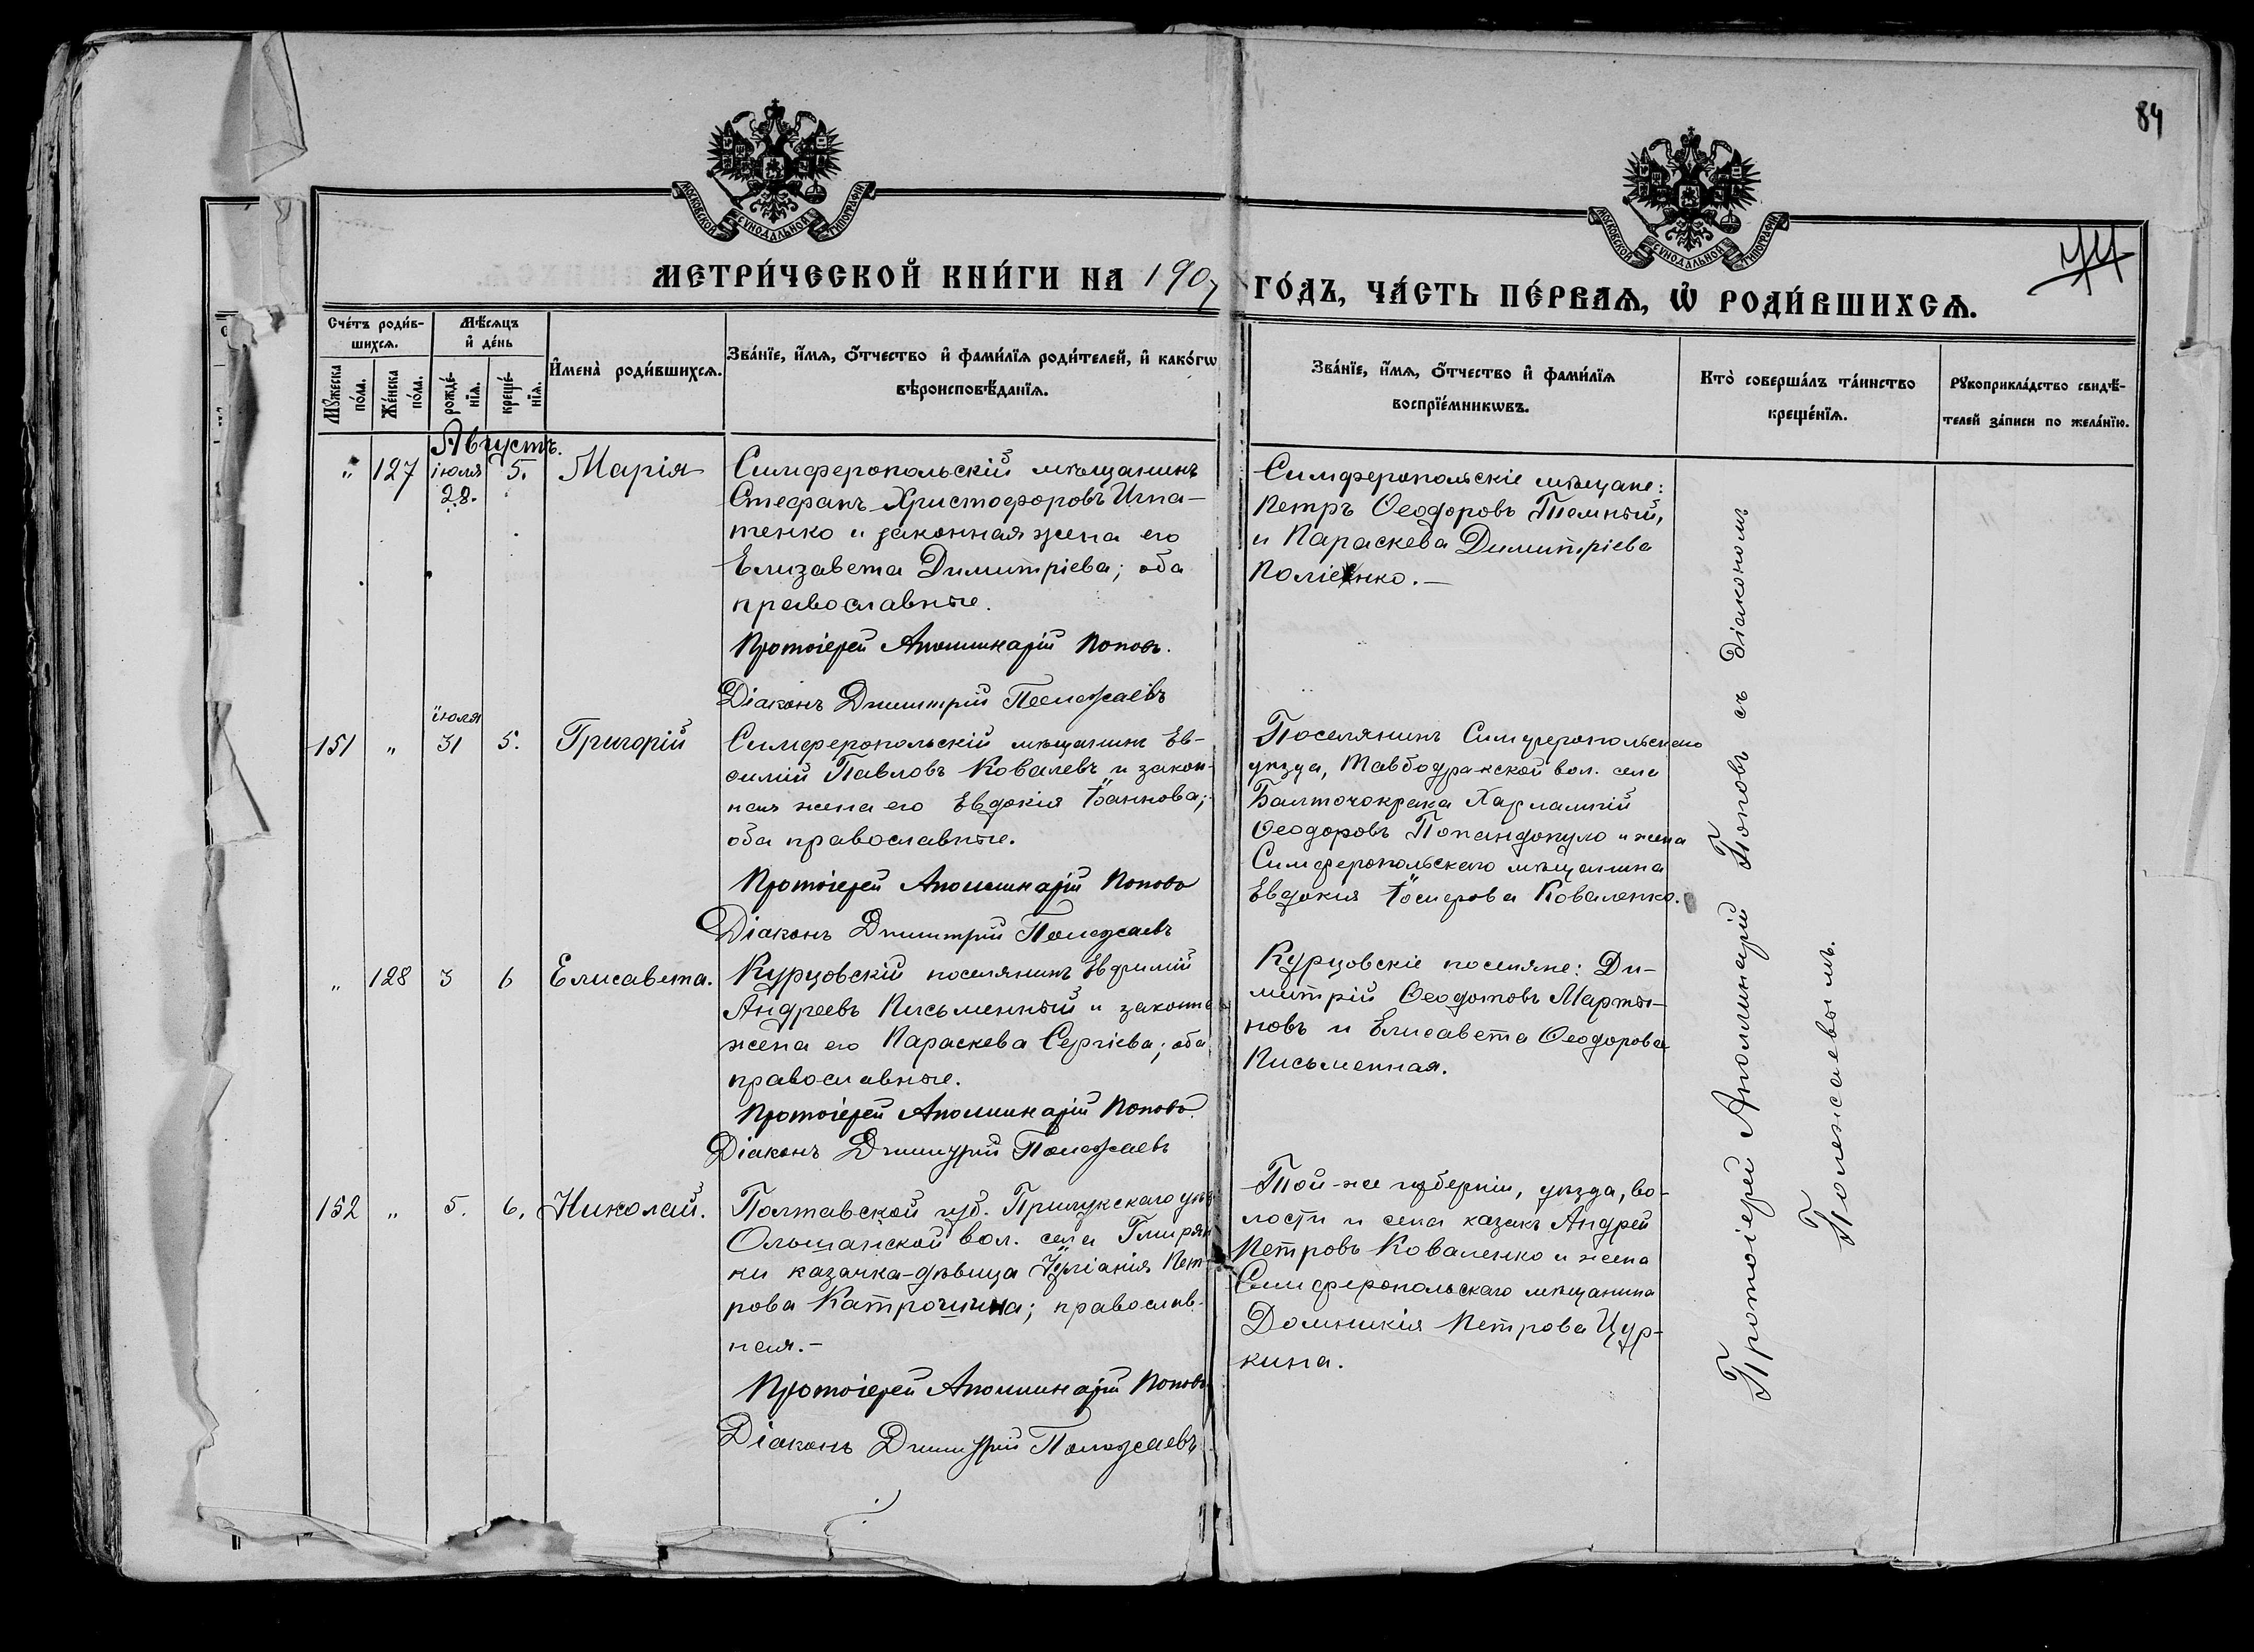 84
МОСКОВСКОЙ СУНОДАЛЬНОЙ ТИПОГРАФІИ
МОСКОВСКОЙ СУНОДАЛЬНОЙ ТИПОГРАФІИ
44
МЕТРИ́ЧЕСКОЙ КНИ́ГИ НА 1907
ГО́ДЪ, ЧА́СТЬ ПЕ́РВАѦ, Ѡ҆ РОДИ́ВШИХСѦ.
Сче́тъ роди́в-
шихсѧ.
Мѣ́сѧцъ
и҆ де́нь
Мꙋ́жеска
по́ла.
Же́нска
по́ла.
рожде́-
нїѧ.
креще́-
нїѧ.
И҆мена̀ роди́вшихсѧ.
Зва́нїе, и҆́мѧ, ѻ҆́тчество и҆ фами́лїѧ роди́телей, и҆ како́гѡ
вѣроисповѣ́данїѧ.
Зва́нїе, и҆́мѧ, ѻ҆́тчество и҆ фами́лїѧ
воспрїе́мникѡвъ.
Кто̀ соверша́лъ та́инство
креще́нїѧ.
Рꙋкоприкла́дство свидѣ́-
телей за́писи по жела́нїю.
Августъ.
" 127 іюля 28. 5. Марія
Симферопольскій мѣщанинъ
Стефанъ Христофоровъ Игна-
тенко и законная жена его
Елизавета Димитріева; оба
православные.
Протоіерей Аполлинарій Поповъ.
Діаконъ Дмитрій Полежаевъ
Симферопольскіе мѣщане:
Петръ Ѳеодоровъ Темный,
и Параскева Димитріева
151 " іюля 31 5. Григорій
Симферопольскій мѣщанинъ Ев-
фимій Павловъ Ковалевъ и закон-
ная жена его Евдокія Іоаннова;
оба православные.
Протоіерей Аполлинарій Поповъ
Діаконъ Дмитрій Полежаевъ
Поселянинъ Симферопольскаго
уѣзда, вол. села
Харлампій
Ѳеодоровъ Попандопуло и жена
Симферопольскаго мѣщанина
Евдокія Іосифова Коваленко.
" 128 3 6 Елисавета.
Курцовскій поселянинъ Евфимій
Андреевъ Письменный и законная
жена его Параскева Сергіева; оба
православные.
Протоіерей Аполлинарій Поповъ.
Діаконъ Дмитрій Полежаевъ
Курцовскіе поселяне: Ди-
митрій Ѳеодотовъ Марты-
новъ и Елисавета Ѳеодорова
Письменная.
152 " 5. 6. Николай.
Полтавской губ. Прилукскаго уѣз.
Ольшанской вол. села Гмирян
ки казачка-дѣвица Іуліанія Пет-
рова православ-
ная.-
Протоіерей Аполлинарій Поповъ
Діаконъ Дмитрій Полежаевъ
Той-же губерніи, уѣзда, во-
лости и села казакъ Андрей
Петровъ Коваленко и жена
Симферопольскаго мѣщанина
Домникія Петрова Цур-
кина.
Протоіерей Аполлинарій Поповъ съ діакономъ
Полежаевымъ.